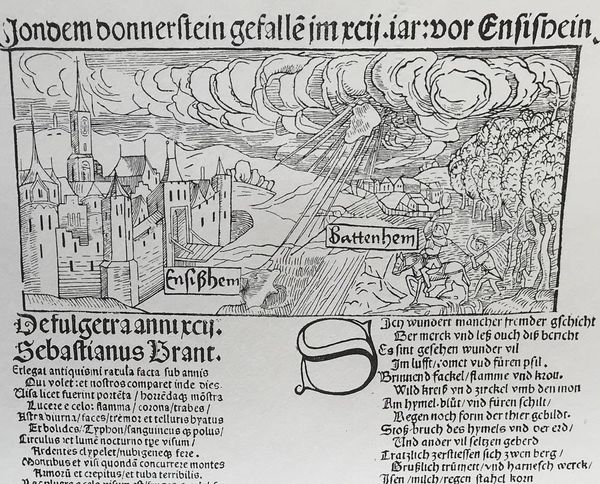 Von dem donnerstein gefallē jm xcij. iar: vor Ensishein.
Battenhem
Ensißhem
De fulgetra anni xcij.
Sebastianus Brant.
Erlegat antiquis miracula facta sub annis
Qui volet: et nostros comparet inde dies.
Uisa licet fuerint portēta / horrēdaqꝫ mōstra
Lucere e celo: flamma / corona / trabes /
Astra diurna / faces / tremor et telluris hyatus
Et bolides / Typhon / sanguineus qꝫ polus /
Circulus: et lumē nocturno tpe visum /
Ardentes clypei / et nubigeneqꝫ fere.
Montibus et visi quondā concurrere montes
Armorū et crepitus / et tuba terribilis.
Sich wundert mancher fremder gschicht
Der merck vnd leß ouch diß bericht
Es sint gesehen wunder vil
Im lufft / comet vnd füren pfil.
Brinnend fackel / flamme vnd kron.
Wild kreiß vnd zirckel vmb den mon
Am hymel. blůt / vnd füren schilt /
Regen noch form der thier gebildt.
Stoß. bruch des hymels vnd der erd /
Und ander vil seltzen geberd
Tratzlich zerstiessen sich zwen berg /
Grüßlich trümett / vnd harnesch werck /
Isen / milch / regen stahel korn